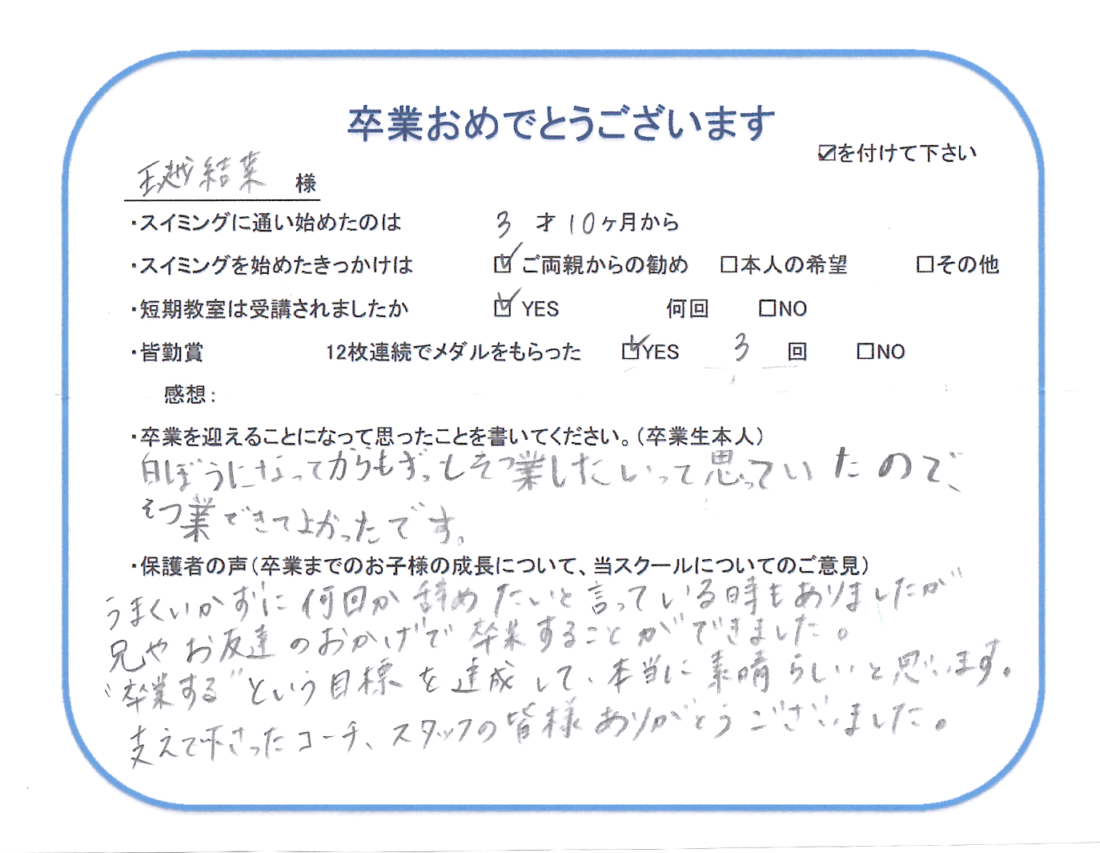 卒業おめでとうございます
☑を付けて下さい
玉越結菜 様
・スイミングに通い始めたのは 3 才 10 ヶ月から
・スイミングを始めたきっかけは ☑ご両親からの勧め □本人の希望 □その他
・短期教室は受講されましたか ☑YES 何回 □NO
・皆勤賞 12枚連続でメダルをもらった ☑YES 3 回 □NO
感想:
・卒業を迎えることになって思ったことを書いてください。(卒業生本人)
白ぼうになってからもずっとそつ業したいって思っていたので、
そつ業できてよかったです。
・保護者の声(卒業までのお子様の成長について、当スクールについてのご意見)
うまくいかずに何回か辞めたいと言っている時もありましたが
兄やお友達のおかげで卒業することができました。
"卒業する"という目標を達成して、本当に素晴らしいと思います。
支えて下さったコーチ、スタッフの皆様ありがとうございました。